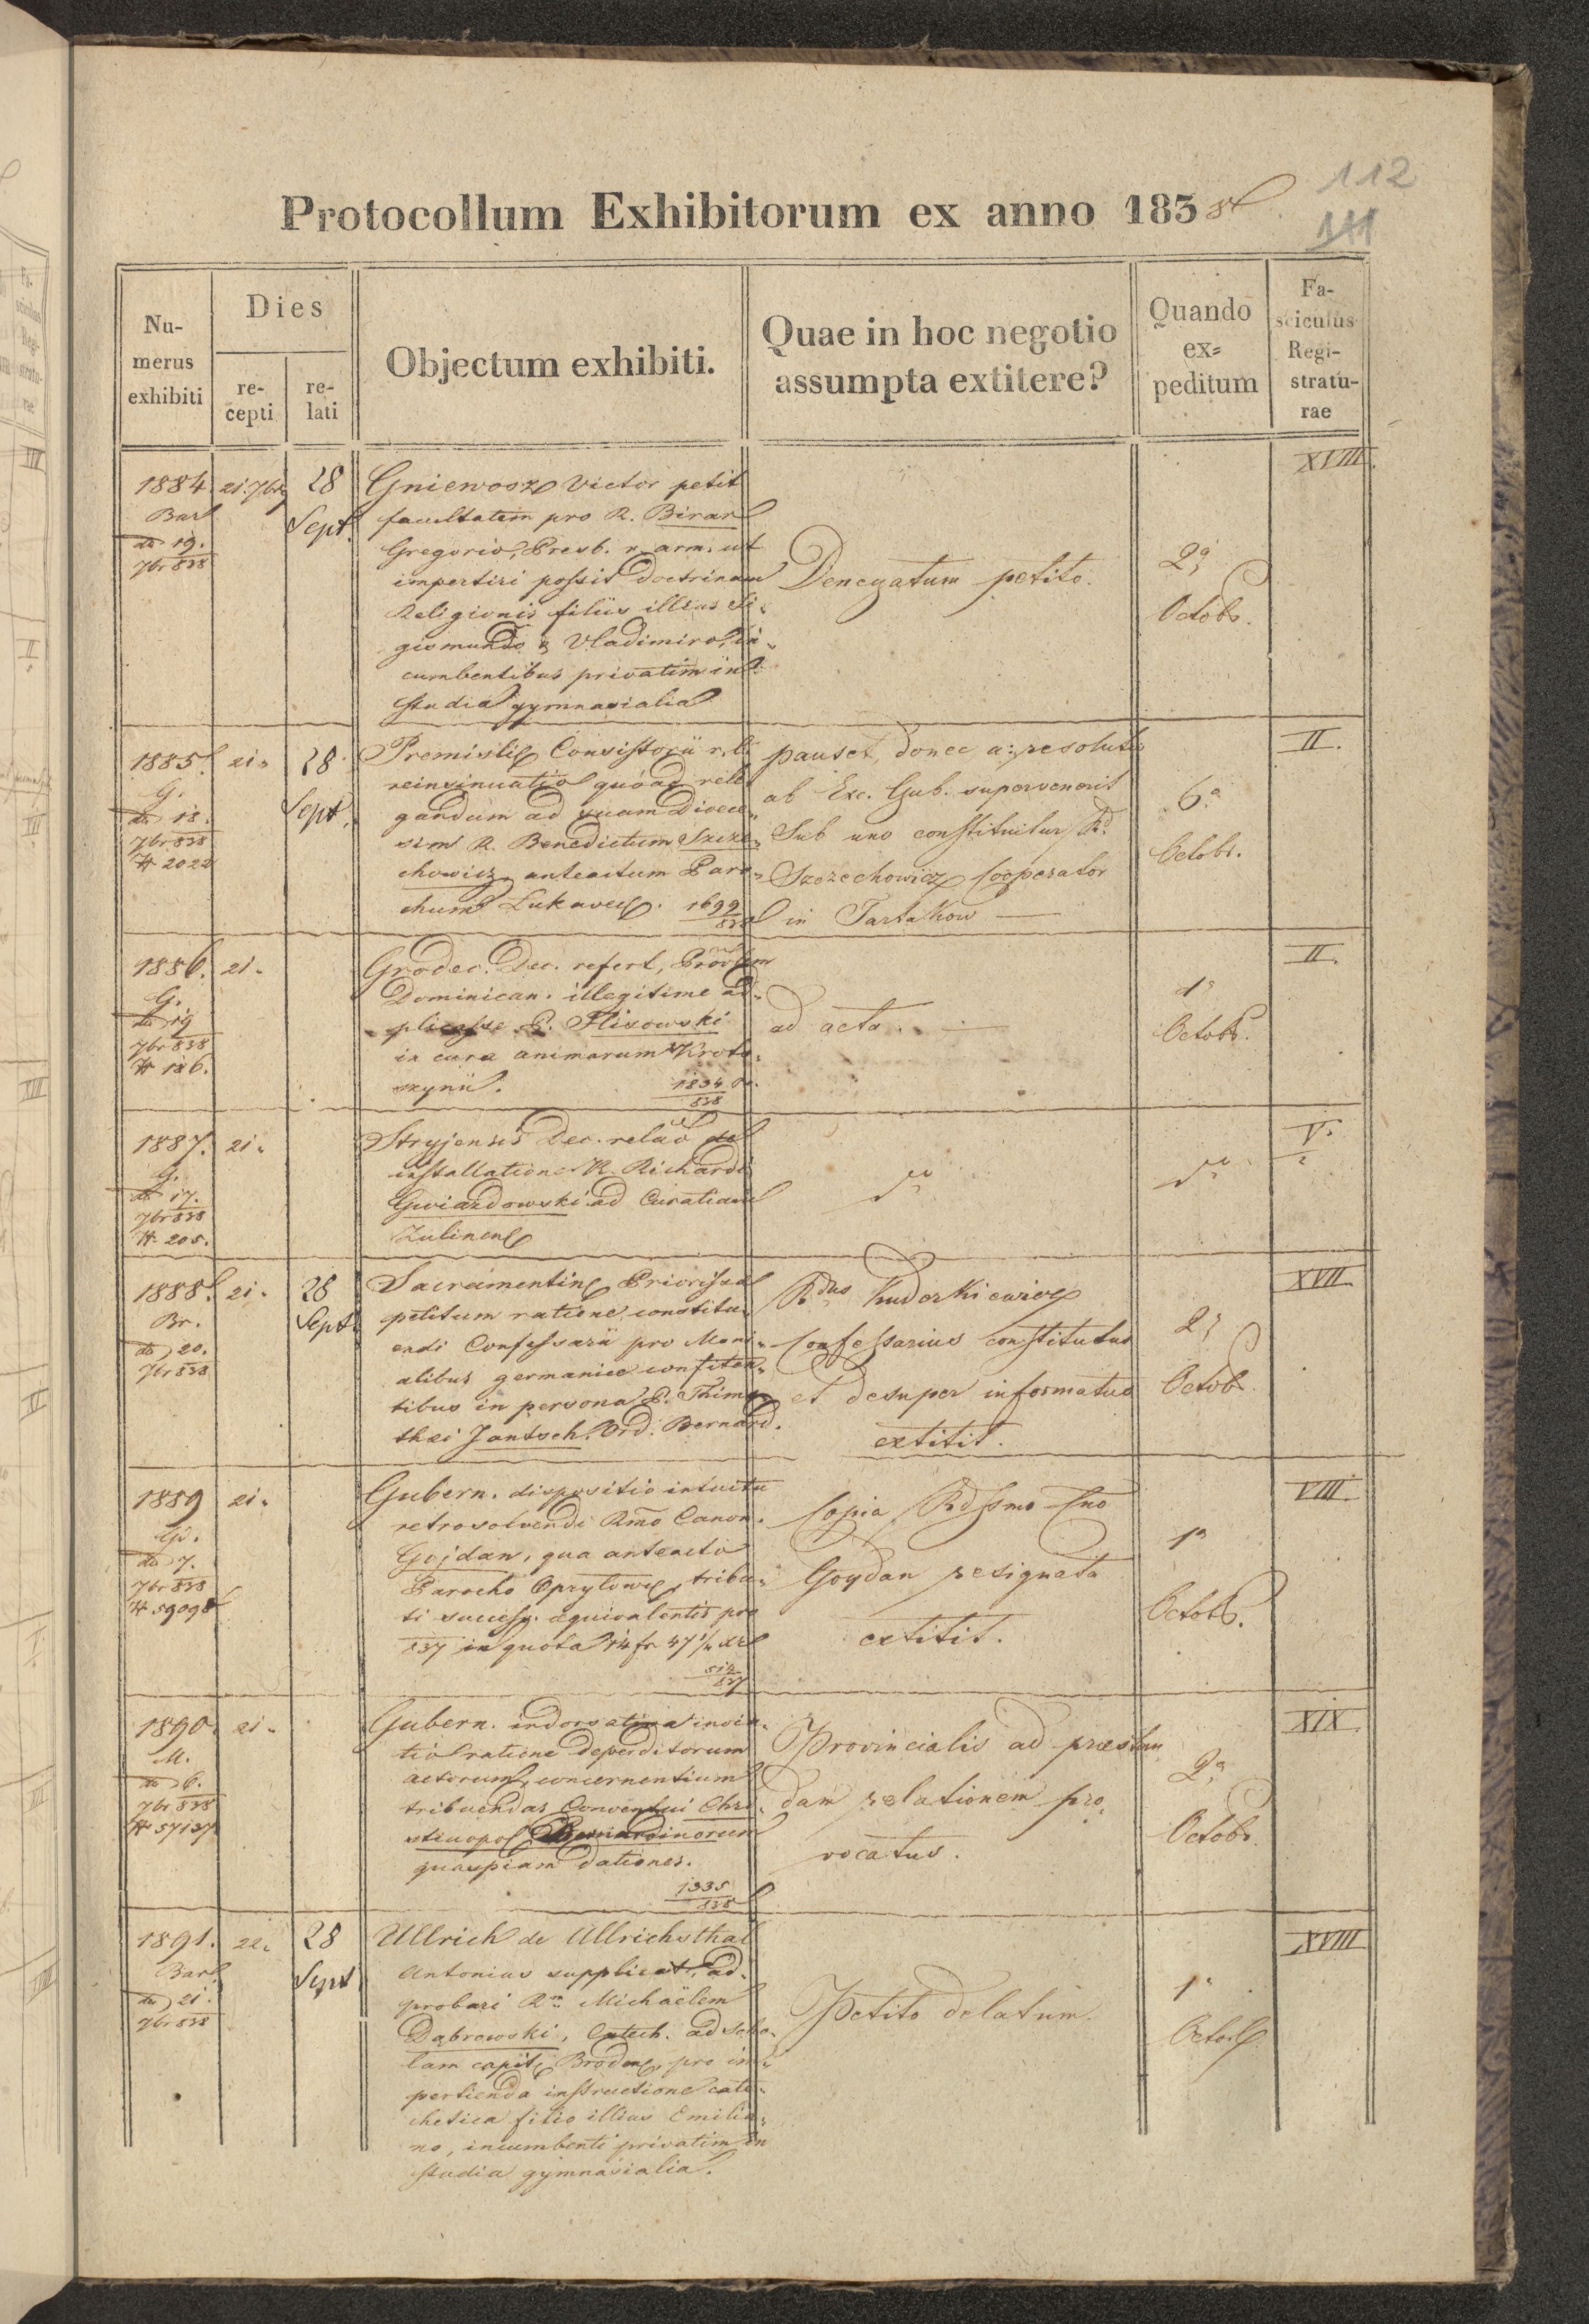 112
111
Protocollum Exhibitorum ex anno 1838
Nu-
merus
exhibiti
Dies
re-
cepti
re-
lati
Objectum exhibiti.
Quae in hoc negotio
assumpta extitere?
Quando
ex=
peditum
Fa-
sciculus
Regi-
stratu-
rae
1884. 21. 7br 28 Sept.
Bar
do 19.
7br 838
Gniewosz Victor petit
facultatem pro R. Birar
Gregorio, Presb. r. arm. ut
impertiri possit doctrinam
Religionis filiis illius Si-
gismundo & Vladimiro, in-
cumbentibus privatim in
studia gymnasialia
Denegatum petito.
2a
Octobr.
XVIII.
1885. 21. 28 Sept.
G.
do 18.
7br 838
# 2022
Premisli Consistorii r. l.
reinsinuatio quoad rele-
gandum ad suam Dioece-
sim R. Benedictum Szcze-
chowicz, anteactum Paro-
chum Lukavec. 1699
838
pauset, donec a: resolutio
ab Exc. Gub. supervenerit
Sub uno constituitur Rd.
Szczechowicz Cooperator
in Tartakow —
6a
Octobr.
II.
1886. 21.
G.
do 19
7br 838
# 186.
Grodec. Dec. refert, Provlem
Dominican. illegitime ad-
plicasse P. Flisowski
in cura animarum Kroto-
szynii. 1834
838
ad acta. —
1a
Octobr.
II.
1887. 21.
G.
do 17.
7br 838
# 205.
Stryjensis Dec. relao de
installatione R. Richardi
Gwiazdowski ad Curatiam
Zulinen
do
do
V.
2
1888. 21. 28 Sept.
Br.
do 20.
7br 838
Sacramentin Priorissae
petitum ratione constitu-
endi Confessarii pro Moni-
alibus germanice confiten-
tibus in persona P. Thimo-
thei Jantsch. Ord. Bernard.
Rdus Kuderkiewicz
Confessarius constitutus
et desuper informatus
extitit.
2a
Octob.
XVII.
1889 21.
Gu.
do 7.
7br 838
# 59098
Gubern. dispositio intuitu
retrosolvendi Rmo Canon.
Gojdan, qua anteacto
Parocho Oprylow, tribu-
ti success. equivalentis pro
837 in quota 14 fr 47 1/4 xr
512
837
Copia Rdssmo Dno
Goydan resignata
extitit.
1a
Octobr.
VIII.
1890. 21.
M.
do 6.
7br 838
# 57137
Gubern. indorsatina invia-
tio ratione deperditorum
actorum, concernentium
tribuendas Conventui Chri-
stinopol Bernardinorum
quaspiam dationes.
1335
838
Provincialis ad præstan
dam relationem pro-
vocatus.
2a
Octobr.
XIX.
1891. 22. 28 Sept
Bar.
do 21.
7br 838
Ullrich de Ullrichsthal
Antonius supplicat, ad-
probari Rm. Michaëlem
Dąbrowski, Catech. ad scho-
lam capit. Broden, pro im-
pertienda instructione cate-
chetica filio illius Emilia-
no, incumbenti privatim in
studia gymnasialia.
Petito delatum.
1a
Octobr.
XVIII